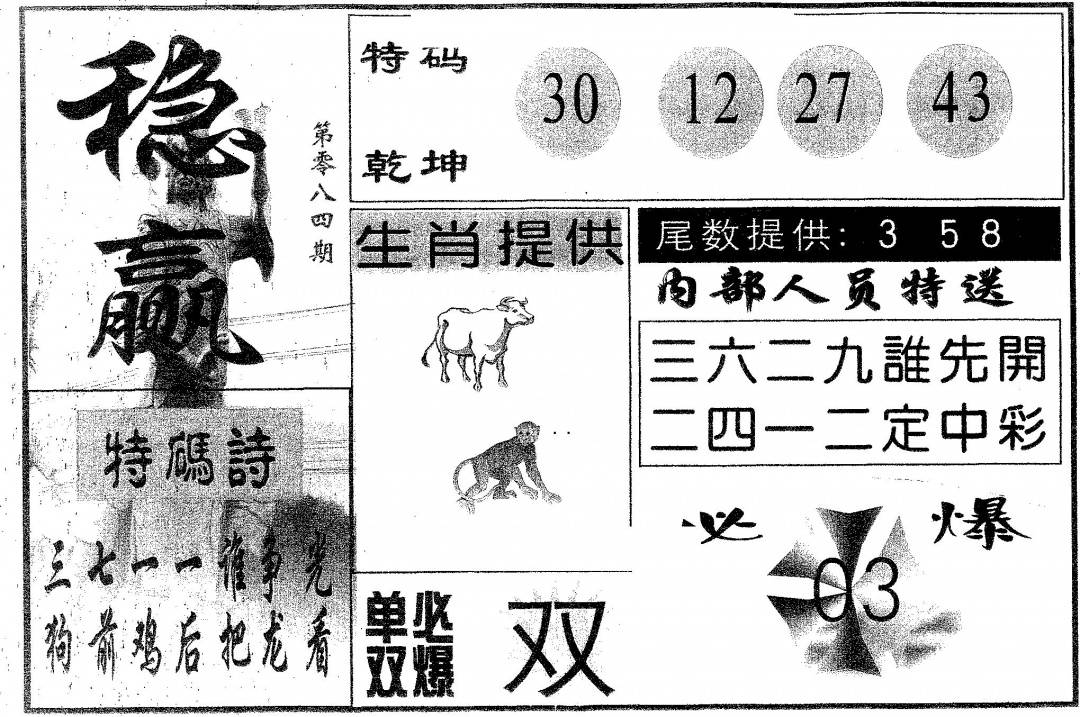 稳赢
第零八四期
特码
乾坤
30 12 27 43
生肖提供
尾数提供: 3 58
内部人员特送
三六二九誰先開
二四一二定中彩
特碼詩
三七一一谁争光
狗前鸡后把龙看
单双
必爆
双
必爆
03